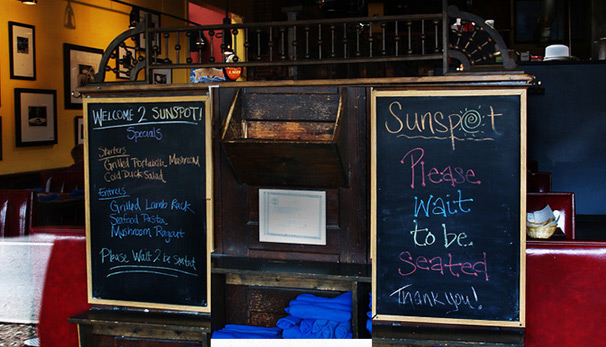 WELCOME 2 SUNSPOT!
Specials
Starters
Grilled Portabella Mushroom
Cold Duck Salad
Entrees
Grilled Lamb Rack
Seafood Pasta
Mushroom Ragout
Please Wait 2 be seated
Sunspot
Please
wait
to be
Seated
Thank you!